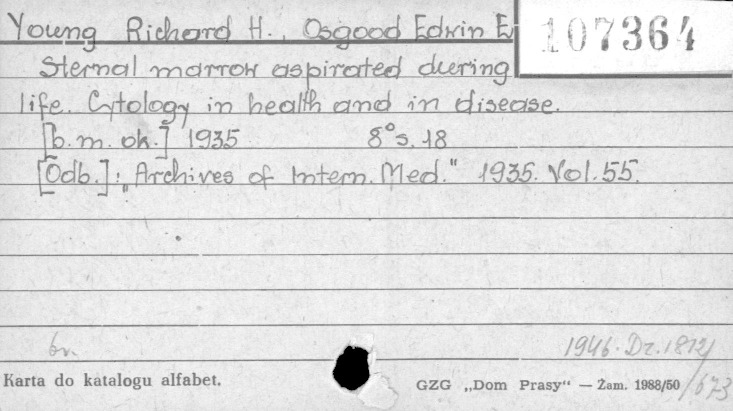 Young Richard H., Osgood Edwin E
107364
Sternal marrow aspirated during
life. Cytology in health and in disease.
[b.m. ok.] 1935 8°s. 18
[Odb.]: „Archives of Intern. Med." 1935. Vol. 55.
br. 1946. Dz. 1812/
673
Karta do katalogu alfabet.
GZG „Dom Prasy“ — Zam. 1988/50